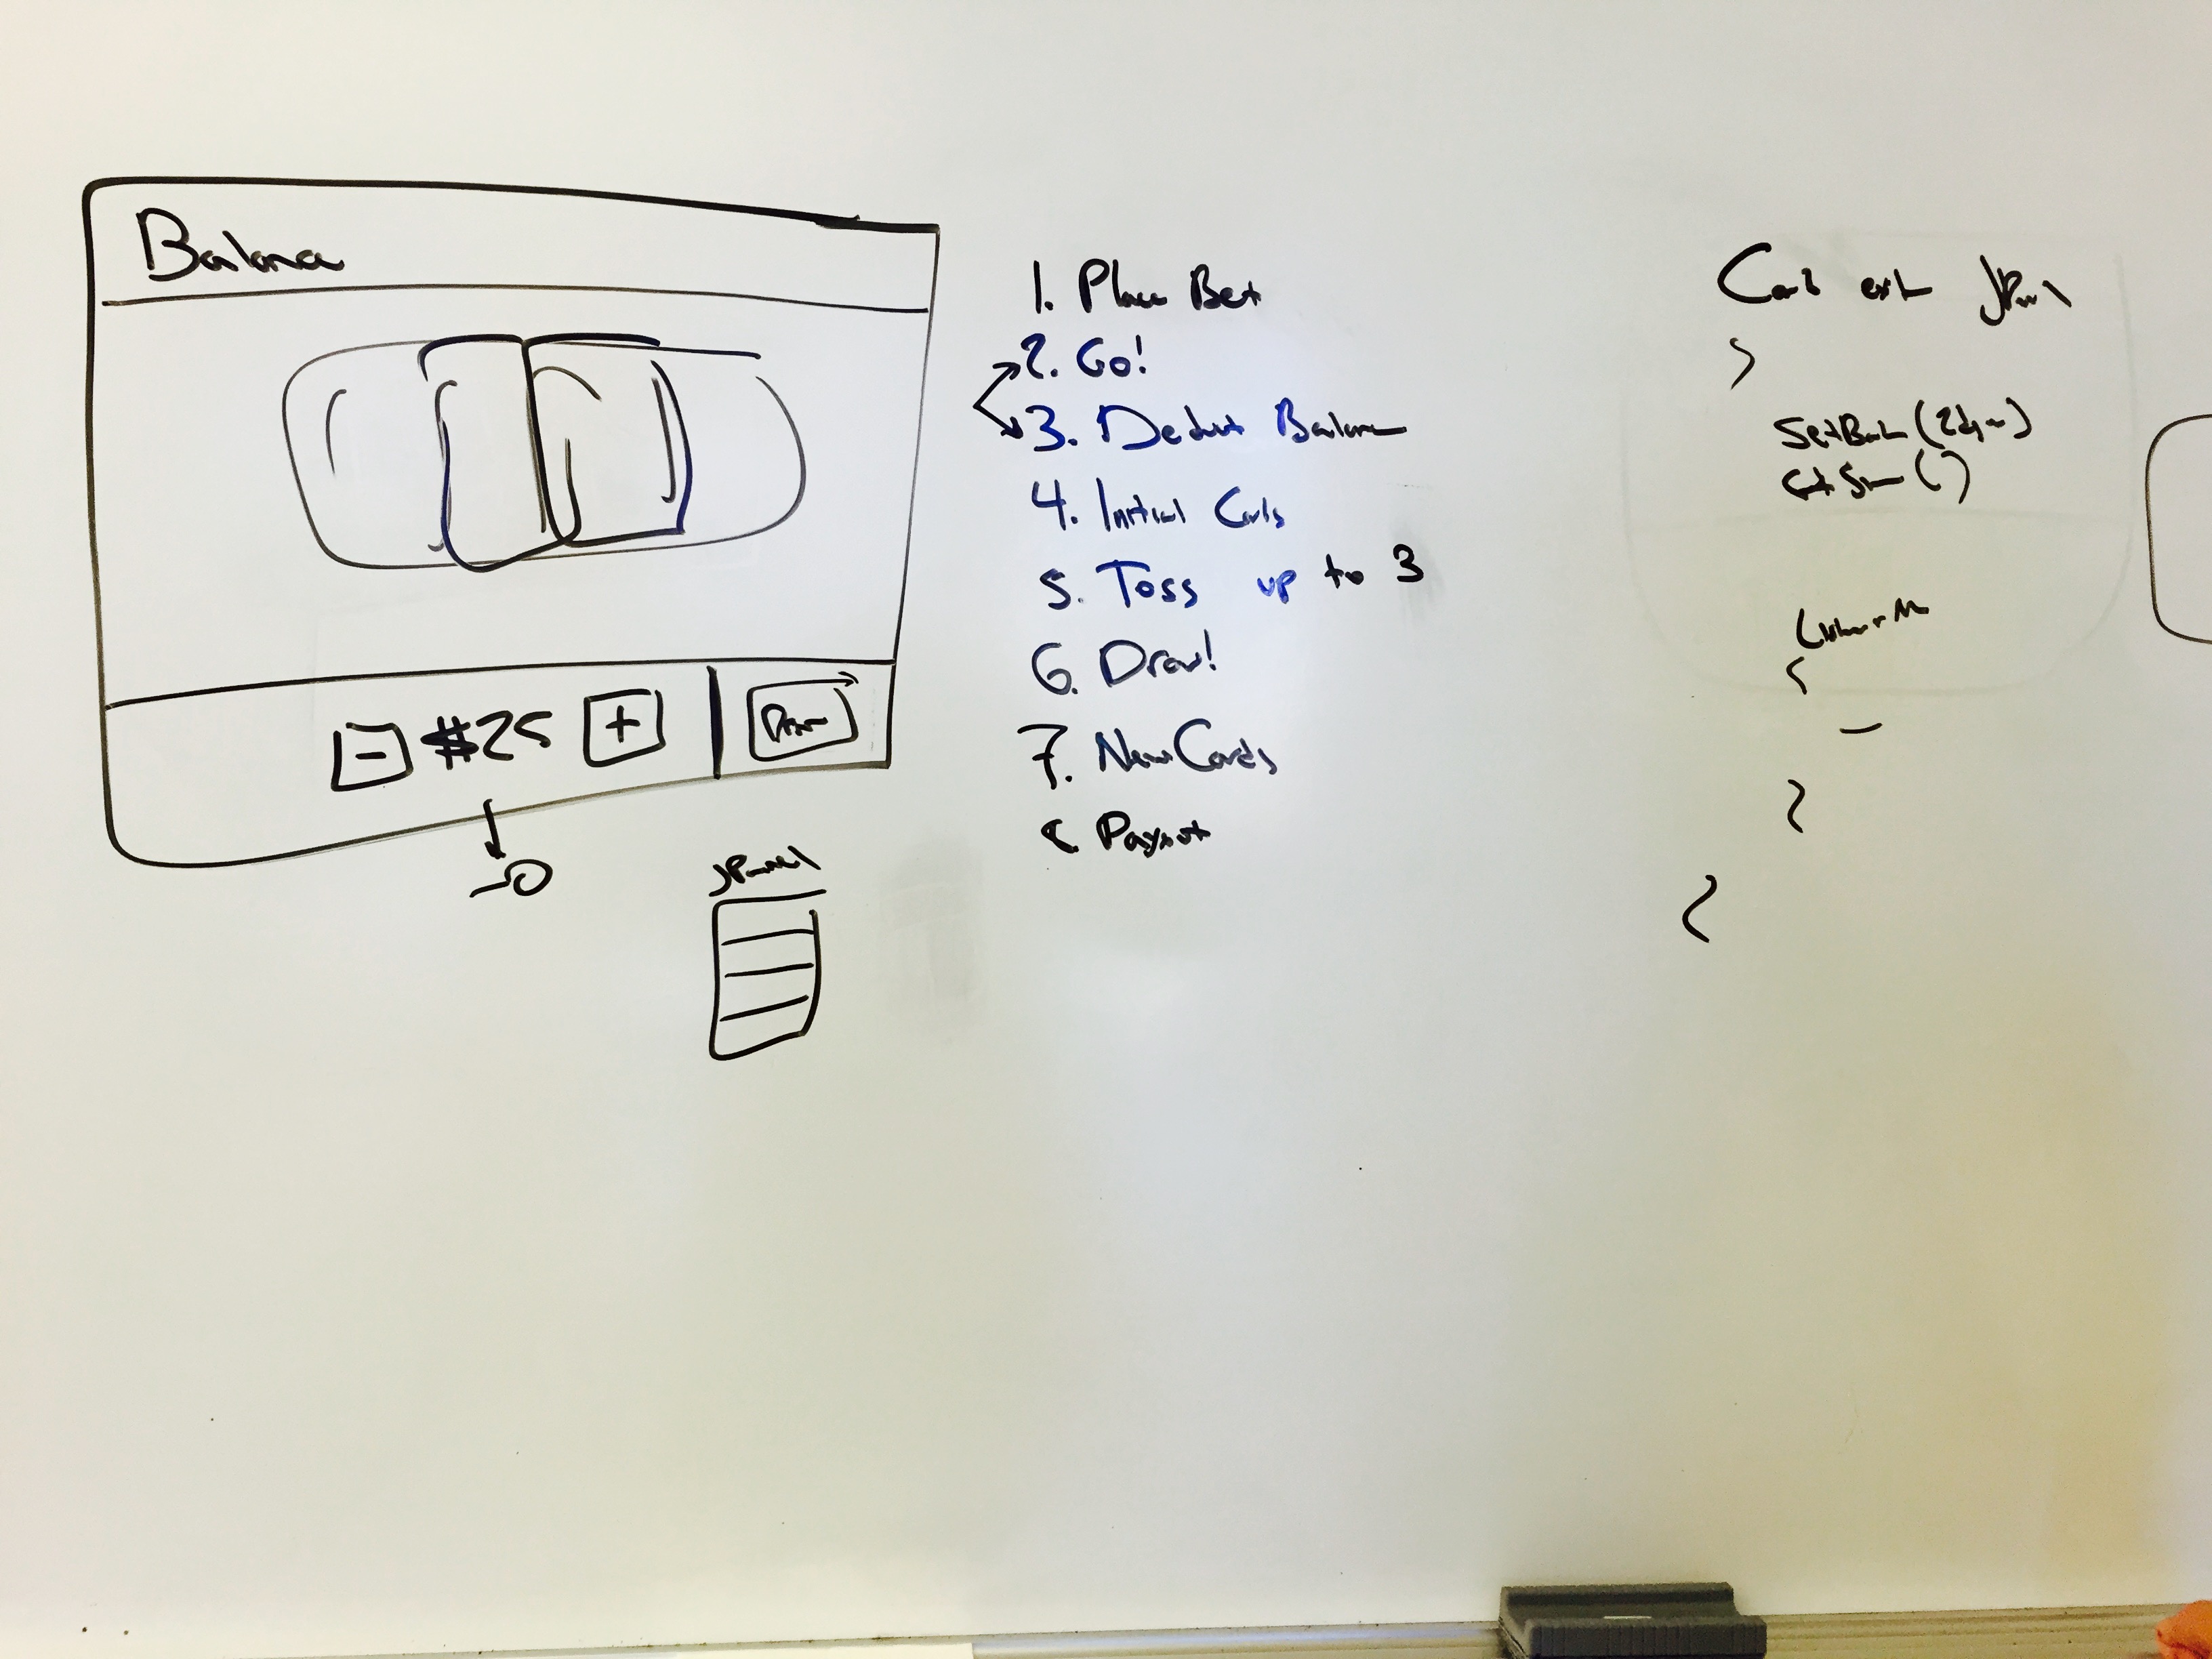 Balance
- $25 +
Draw
JPanel
1. Place Bet
2. Go!
3. Deduct Balance
4. Initial Cards
5. Toss up to 3
6. Draw!
7. New Cards
8. Payout
Card ext JPanel